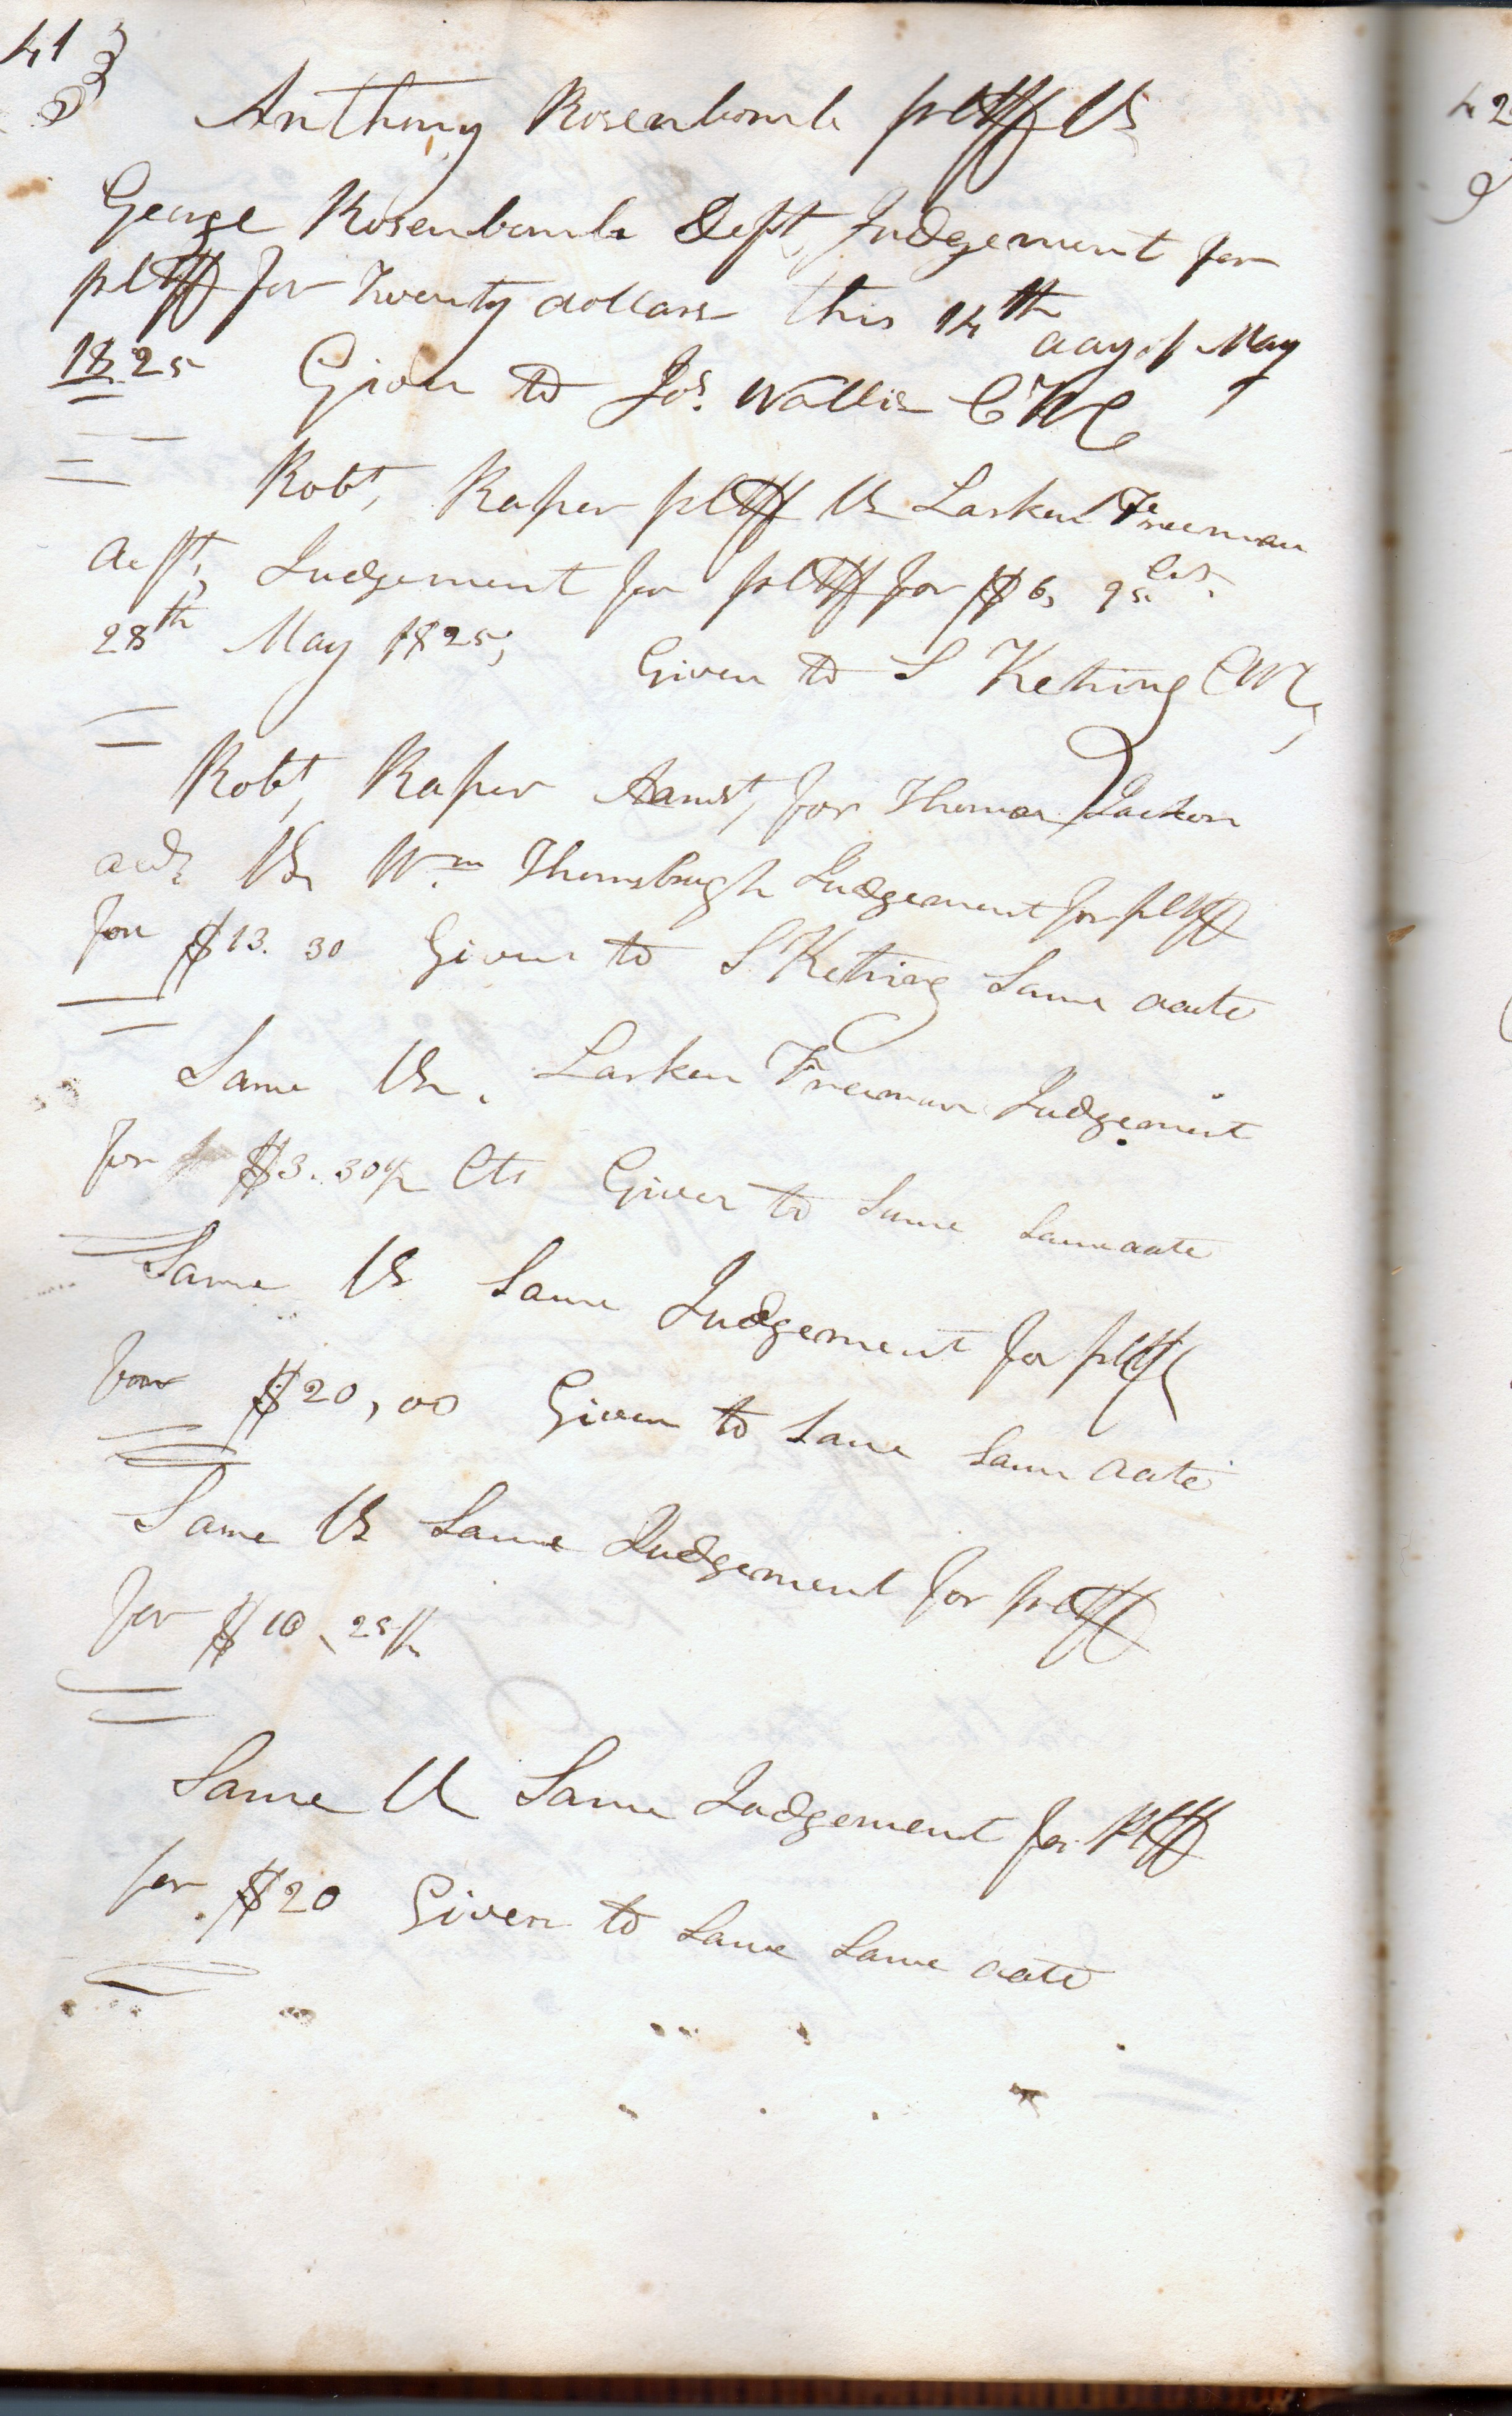 41
Anthony Rosenbomb pltff Vs
George Rosenbomb Deft, Judgement for
pltff for Twenty dollars this 14th day of May
1825 Given to Jos. Wallis
Robt, Raper pltff Vs Larken Freeman
deft, Judgement for pltff for $6, 95 cts.
28th May 1825, Given to S Kething
Robt, Raper Admst, for Thomas Jackson
Vs Wm Thornsbrugh Judgement for pltff
for $13. 30 Given to S Kething Same date
Same Vs. Larken Freeman Judgement
for $3. 30 Cts Given to Same Same date
Same Vs Same Judgement for pltff
for $20,00 Given to Same Same date
Same Vs Same Judgement for pltff
for $10, 25
Same Vs Same Judgement for Pltff
for $20 Given to Same Same date
42